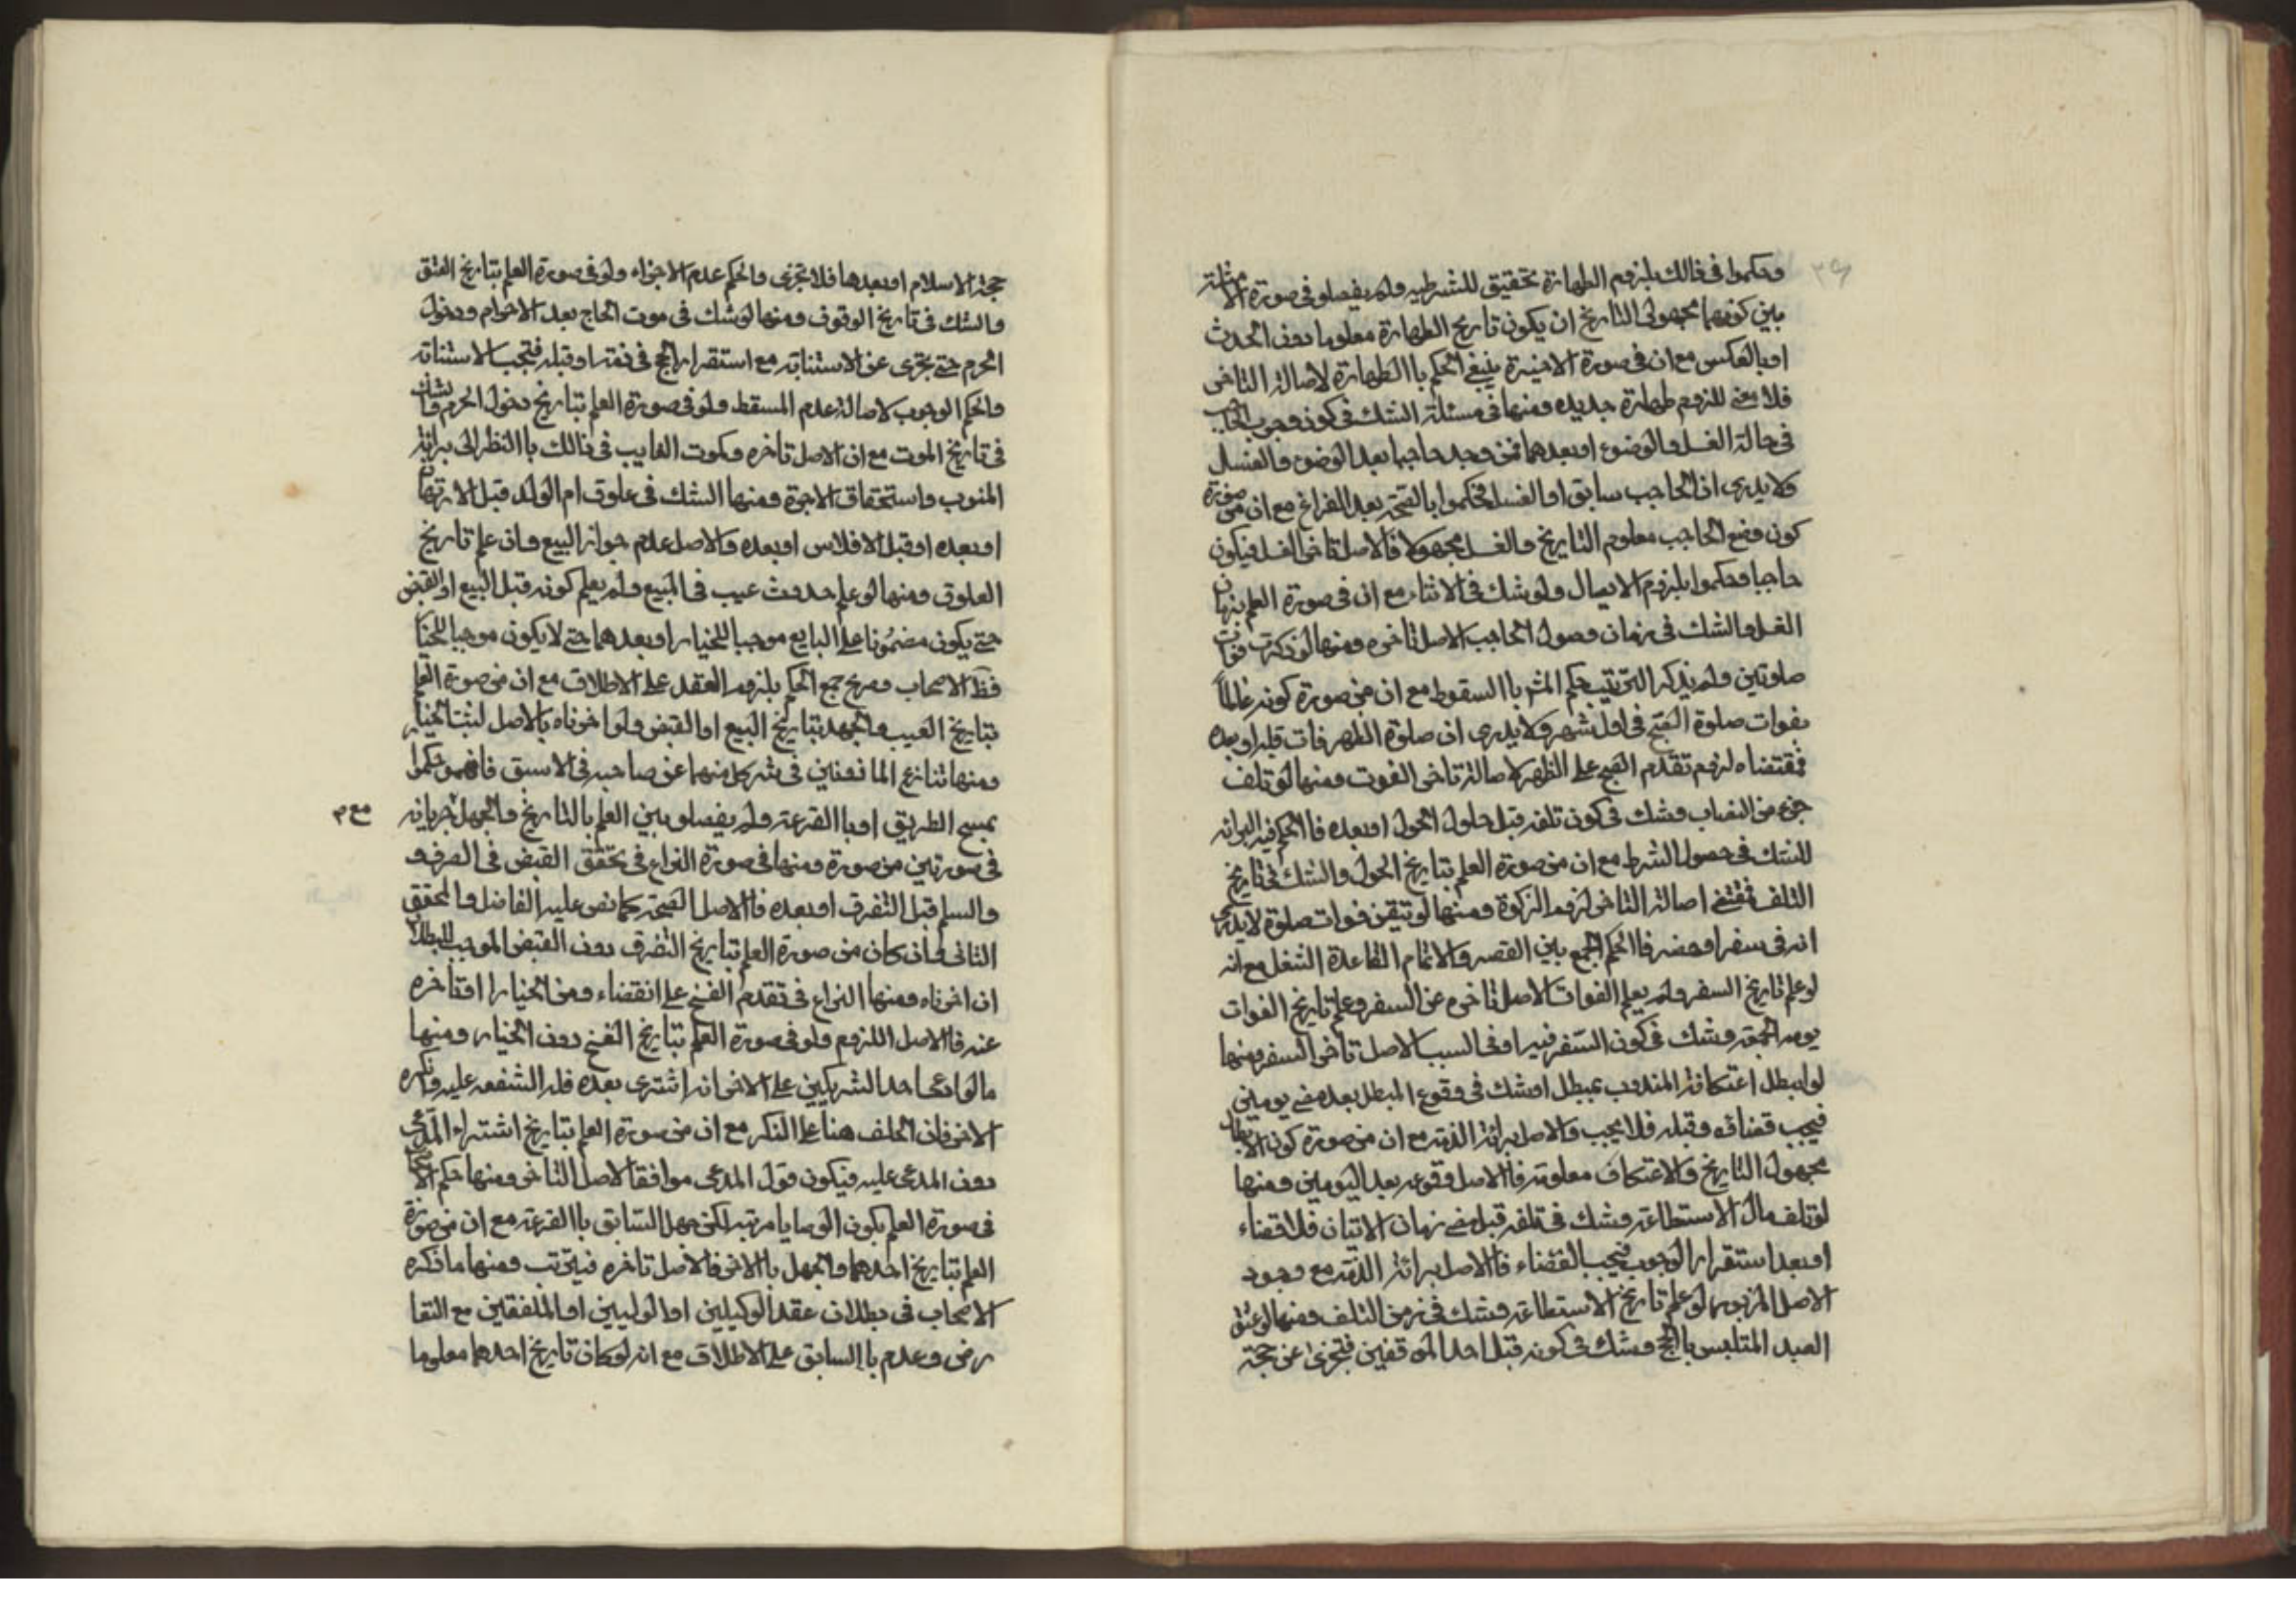 وحكموا فى ذالك بلزوم الطهارة تحقيق للشرطيه ولم يفصلو فى صورة الامثلة
بين كونهما مجهولى التاريخ ان يكون تاريخ الطهارة معلوما دون الحدث
او بالعكس مع ان فى صورة الاخيرة ينبغى الحكم باالطهارة لاصالة التاخر
فلا معنى للزوم طهارة جديده ومنها فى مسئلة الشك فى كون وجوب الحاجب
فى حالة الغسل والوضوع او بعدهما فمن وجد حاجبا بعد الوضوع والغسل
ولا يدرى ان الحاجب سابق او الغسل فحكموا بالصحة بعد الفراغ مع ان من صورة
كون وضع الحاجب معلوم التاريخ والغسل مجهولا فالاصل تاخر الغسل فيكون
حاجبا وحكموا بلزوم الايصال ولو شك فى الاثناء مع ان فى صورة العلم بزمان
الغسل والشك فى زمان وصول الحاجب الاصل تاخره ومنها لو ذكرت فوات
صلوتين ولم يذكر الترتيب حكم باالسقوط مع ان من صورة كونه عالما
بفوات صلوة الصبح فى اول شهر ولا يدرى ان صلوة الظهر فات قبله او بعده
فمقتضاه لزوم تقدم الصبح على الظهر لاصالة تاخر الفوت ومنها لو تلف
جزء من النصاب وشك فى كون تلفه قبل حلول الحول او بعده فاالحكم فيه البرائه
للشك فى حصول الشرط مع ان من صورة العلم بتاريخ الحول والشك فى تاريخ
التلف فمقتضى اصالة التاخر لزوم الزكوة ومنها لو تيقن فوات صلوة لا يدرى
انه فى سفر او حضر فاالحكم الجمع بين القصر والاتمام القاعدة الشغل مع انه
لو علم تاريخ السفر ولم يعلم الفوات الاصل تاخره عن السفر وعلم تاريخ الفوات
يوم الجمعة وشك فى كون السفر فيه او فى السبت الاصل تاخر السفر ومنها
لو ابطل اعتكافه المندوب بمبطل او شك فى وقوع المبطل بعد مضى يومين
فيجب قضائه وقبله فلا يجب والاصل برائة الذمة مع ان من صورة كون الابطال
مجهول التاريخ والاعتكاف معلومة فاالاصل وقوعه بعد اليومين ومنها
لو تلف مال الاستطاعة وشك فى تلفه قبل مضى زمان الاتيان فلا قضاء
او بعد استقرار الوجوب فيجب القضاء فاالاصل برائة الذمة مع وجود
الاصل المزبور لو علم تاريخ الاستطاعة وشك فى زمن التلف ومنها لو عتق
العبد المتلبس باالحج وشك فى كونه قبل احد الموقفين فتجزى عن حجة
حجة الاسلام او بعدها فلا تجزى والحكم عدم الاجزاء ولو فى صورة العلم بتاريخ العتق
والشك فى تاريخ الوقوف ومنها لو شك فى موت الحاج بعد الاحرام ودخول
الحرم حتى تجزى عن الاستنابة مع استقرار الحج فى ذمته او قبله فتجب الاستنابة
والحكم الوجوب لاصالة عدم المسقط ولو فى صورة العلم بتاريخ دخول الحرم والشك
فى تاريخ الموت مع ان الاصل تاخره وكموت النايب فى ذالك باالنظر الى برائة
المنوب واستحقاق الاجرة ومنها الشك فى علوق ام الولد قبل الارتهان
او بعده او قبل الافلاس او بعده والاصل عدم جواز البيع وان علم تاريخ
العلوق ومنها لو علم حدوث عيب فى المبيع ولم يعلم كونه قبل البيع او القبض
حتى يكون مضمونا على البايع موجبا للخيار او بعدهما حتى لا يكون موجبا للخيار
الاصحاب وصرح جمع الحكم بلزوم العقد على الاطلاق مع ان من صورة العلم
بتاريخ العيب والجهد بتاريخ البيع او القبض ولو اخرناه بالاصل لثبت الخيار
ومنها تنازع الماذونين فى شركل منهما عن صاحبه فى الاسبق فانهم حكموا
بمسح الطريق او باالقرعة ولم يفصلو بين العلم بالتاريخ والجهل جريانه
مع م
فى صورتين من صورة ومنها فى صورة النزاع فى تحقق القبض فى الصرف و
والسلم قبل التفرق او بعده فاالاصل الصحة كما نص عليه الفاضل والمحقق
الثانى وان كان من صورة العلم بتاريخ التفرق دون القبض الموجب للبطلان
ان اخرناه ومنها النزاع فى تقدم الفسخ على انقضاء زمن الخيار او تاخره
عنه فاالاصل اللزوم ولو فى صورة العلم بتاريخ الفسخ دون الخيار ومنها
ما لو ادعى احد الشريكين على الاخر انه اشترى بعده فله الشفعه عليه وانكره
الاخر فان الحلف هنا على المنكر مع ان من صورة العلم بتاريخ اشتراء المدعى
دون المدعى عليه فيكون قول المدعى موافقا لاصل التاخر ومنها حكم الاصحاب
فى صورة العلم بكون الوصايا مرتبه لكن جهل السابق باالقرعة مع ان من صورة
العلم بتاريخ احدهما والجهل باالاخر فالاصل تاخره فيترتب ومنها ما ذكره
الاصحاب فى بطلان عقد الوكيلين او الوليين او الملفقين مع التقا
رض وعدم باالسابق على الاطلاق مع انه لو كان تاريخ احدهما معلوما